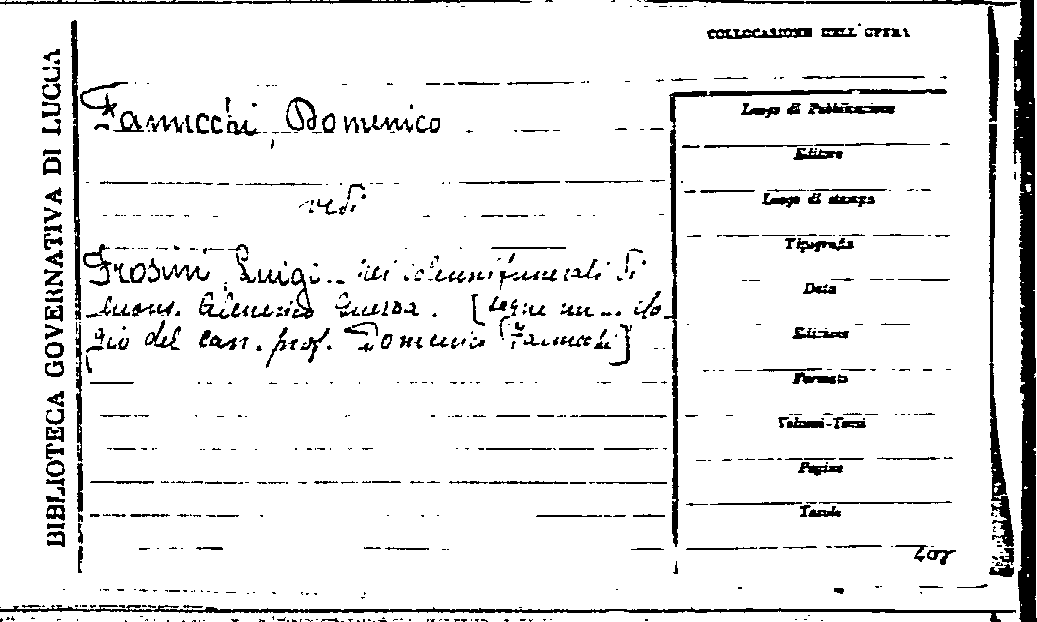 COLLOCAZIONE DELL'OPERA
BIBLIOTECA GOVERNATIVA DI LUCCA
Fanucchi, Domenico
vedi
Frosini Luigi - Nei solenni funerali di
mons. Guerra. [Segue un... elo-
gio del can. prof. Domenico Fanucchi]
Luogo di Pubblicazione
Editore
Luogo di stampa
Tipografia
Data
Edizione
Formato
Volumi-Tomi
Pagine
Tavole